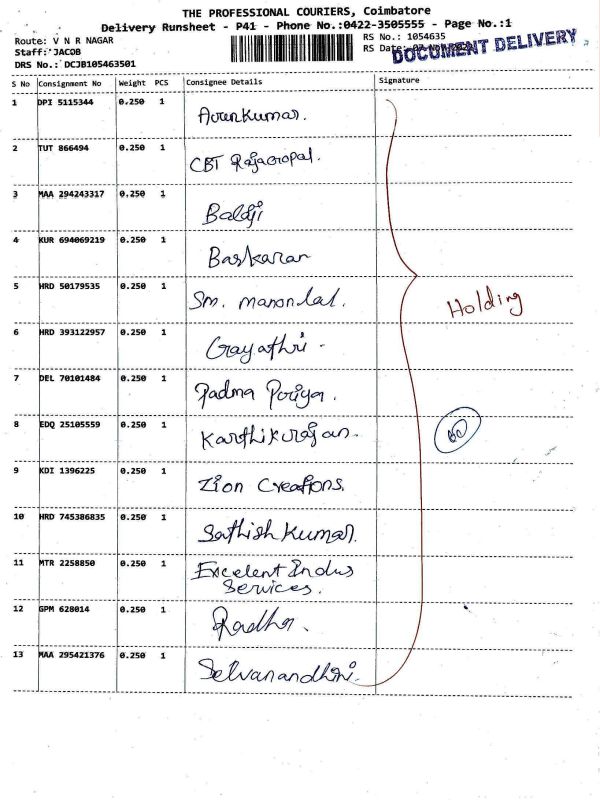 THE PROFESSIONAL COURIERS, Coimbatore
Delivery Runsheet - P41 - Phone No.:0422-3505555 - Page No.:1
Route: V N R NAGAR
Staff: JACOB
DRS No.: DCJB105463501
RS No.: 1054635
RS Date:
DOCUMENT DELIVERY
S No Consignment No Weight PCS Consignee Details Signature
1 DPI 5115344 0.250 1 Arunkumar.
2 TUT 866494 0.250 1 CBT Rajagopal.
3 MAA 294243317 0.250 1 Balaji
4 KUR 694069219 0.250 1 Baskaran
5 HRD 50179535 0.250 1 Sm. manonlal.
Holding
6 HRD 393122957 0.250 1 Gayathri.
7 DEL 70101484 0.250 1 Padma Poriya.
8 EDQ 25105559 0.250 1 Karthikrajan.
9 KDI 1396225 0.250 1 Zion Creations.
10 HRD 745386835 0.250 1 Sathish Kumar.
11 MTR 2258850 0.250 1 Excelent Indus
Services.
12 GPM 628014 0.250 1 Radha.
13 MAA 295421376 0.250 1 Selvanandhini.